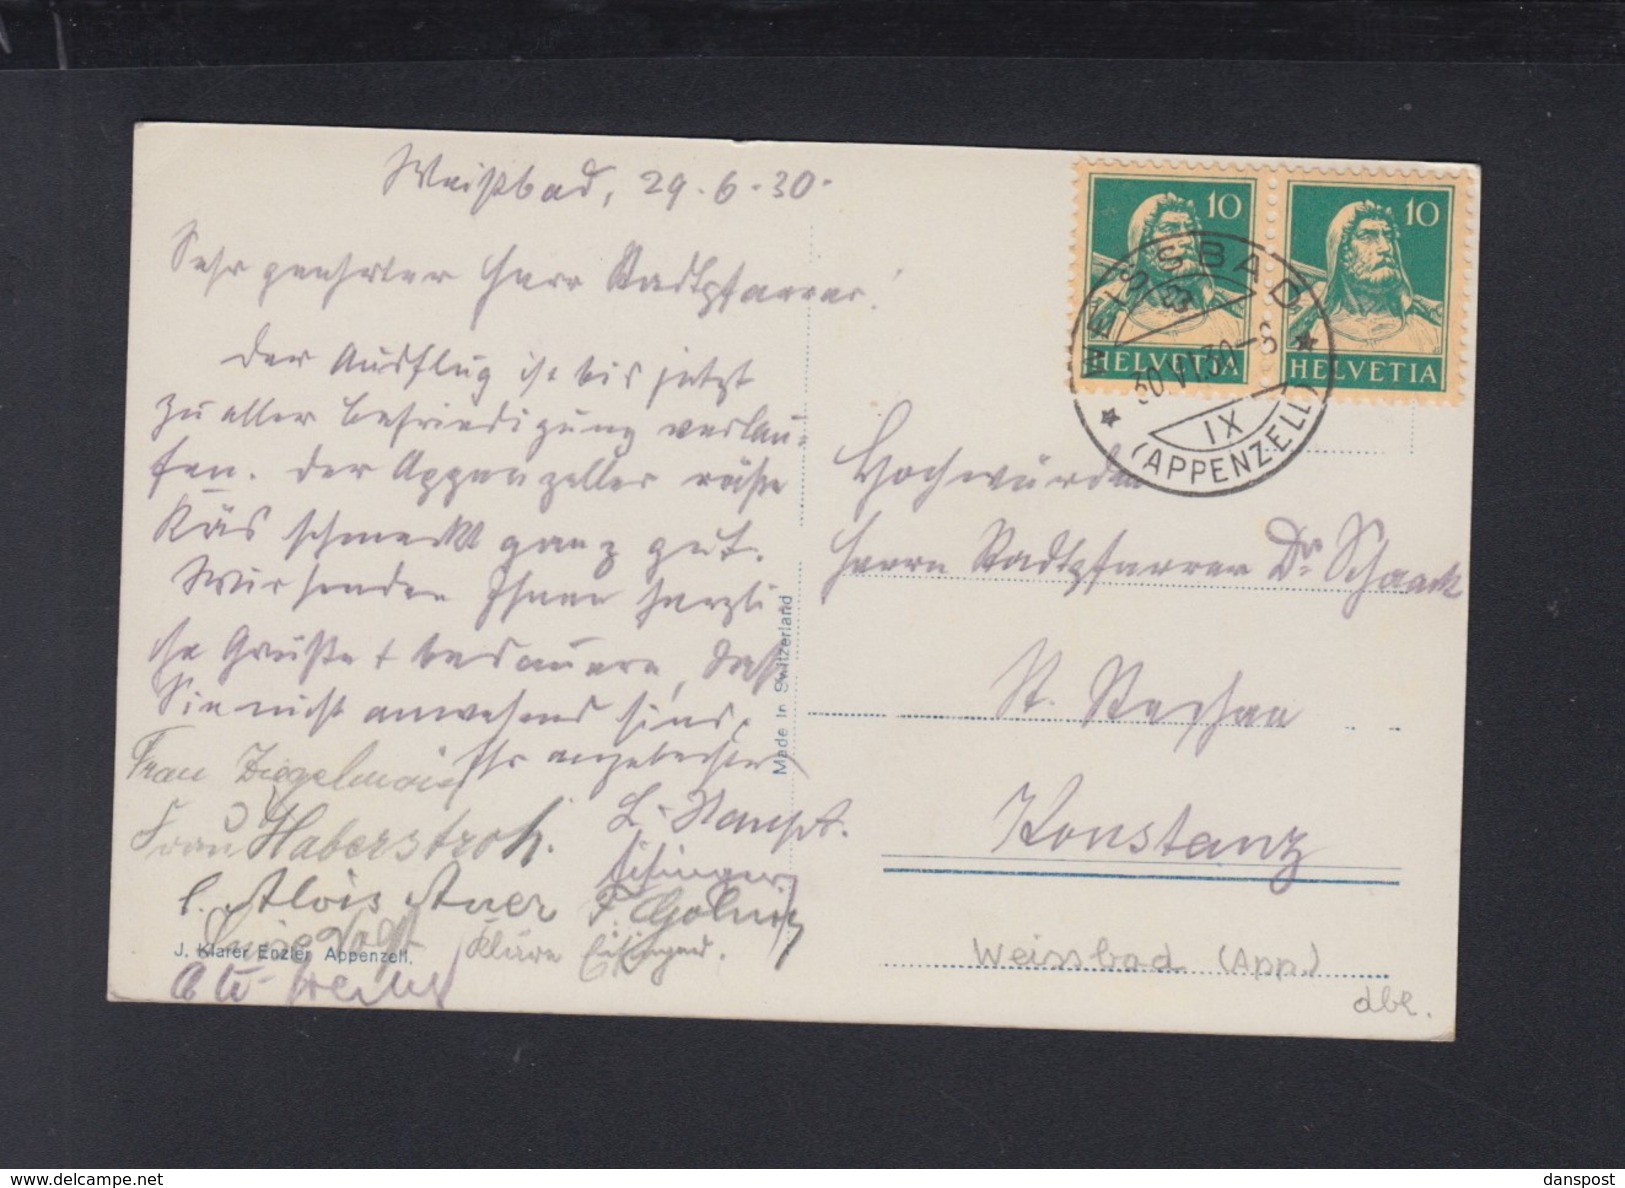 Weißbad, 29.6.30.
Sehr geehrter Herr Stadtpfarrer!
Der Ausflug ist bis jetzt
zu aller Befriedigung verlau-
fen. Der Appenzeller räße
Käs schmeckt ganz gut.
Wir senden Ihnen herzli
che Grüße + bedauern, daß
Sie nicht anwesend sind.
Ihr ergebenster
Frau Ziegelmaier
Frau Haberstroh.
Alois Auer
Luise Vogt
Kläre
J. Klarer Enzler Appenzell.
Made in Switzerland
10
HELVETIA
10
HELVETIA
WEISSBAD
30.VI.30-8
IX
(APPENZELL)
Hochwürden
Herrn Stadtpfarrer Dr. Schaack
St. Stephan
Konstanz
Weissbad (App.)
dbr.
danspost